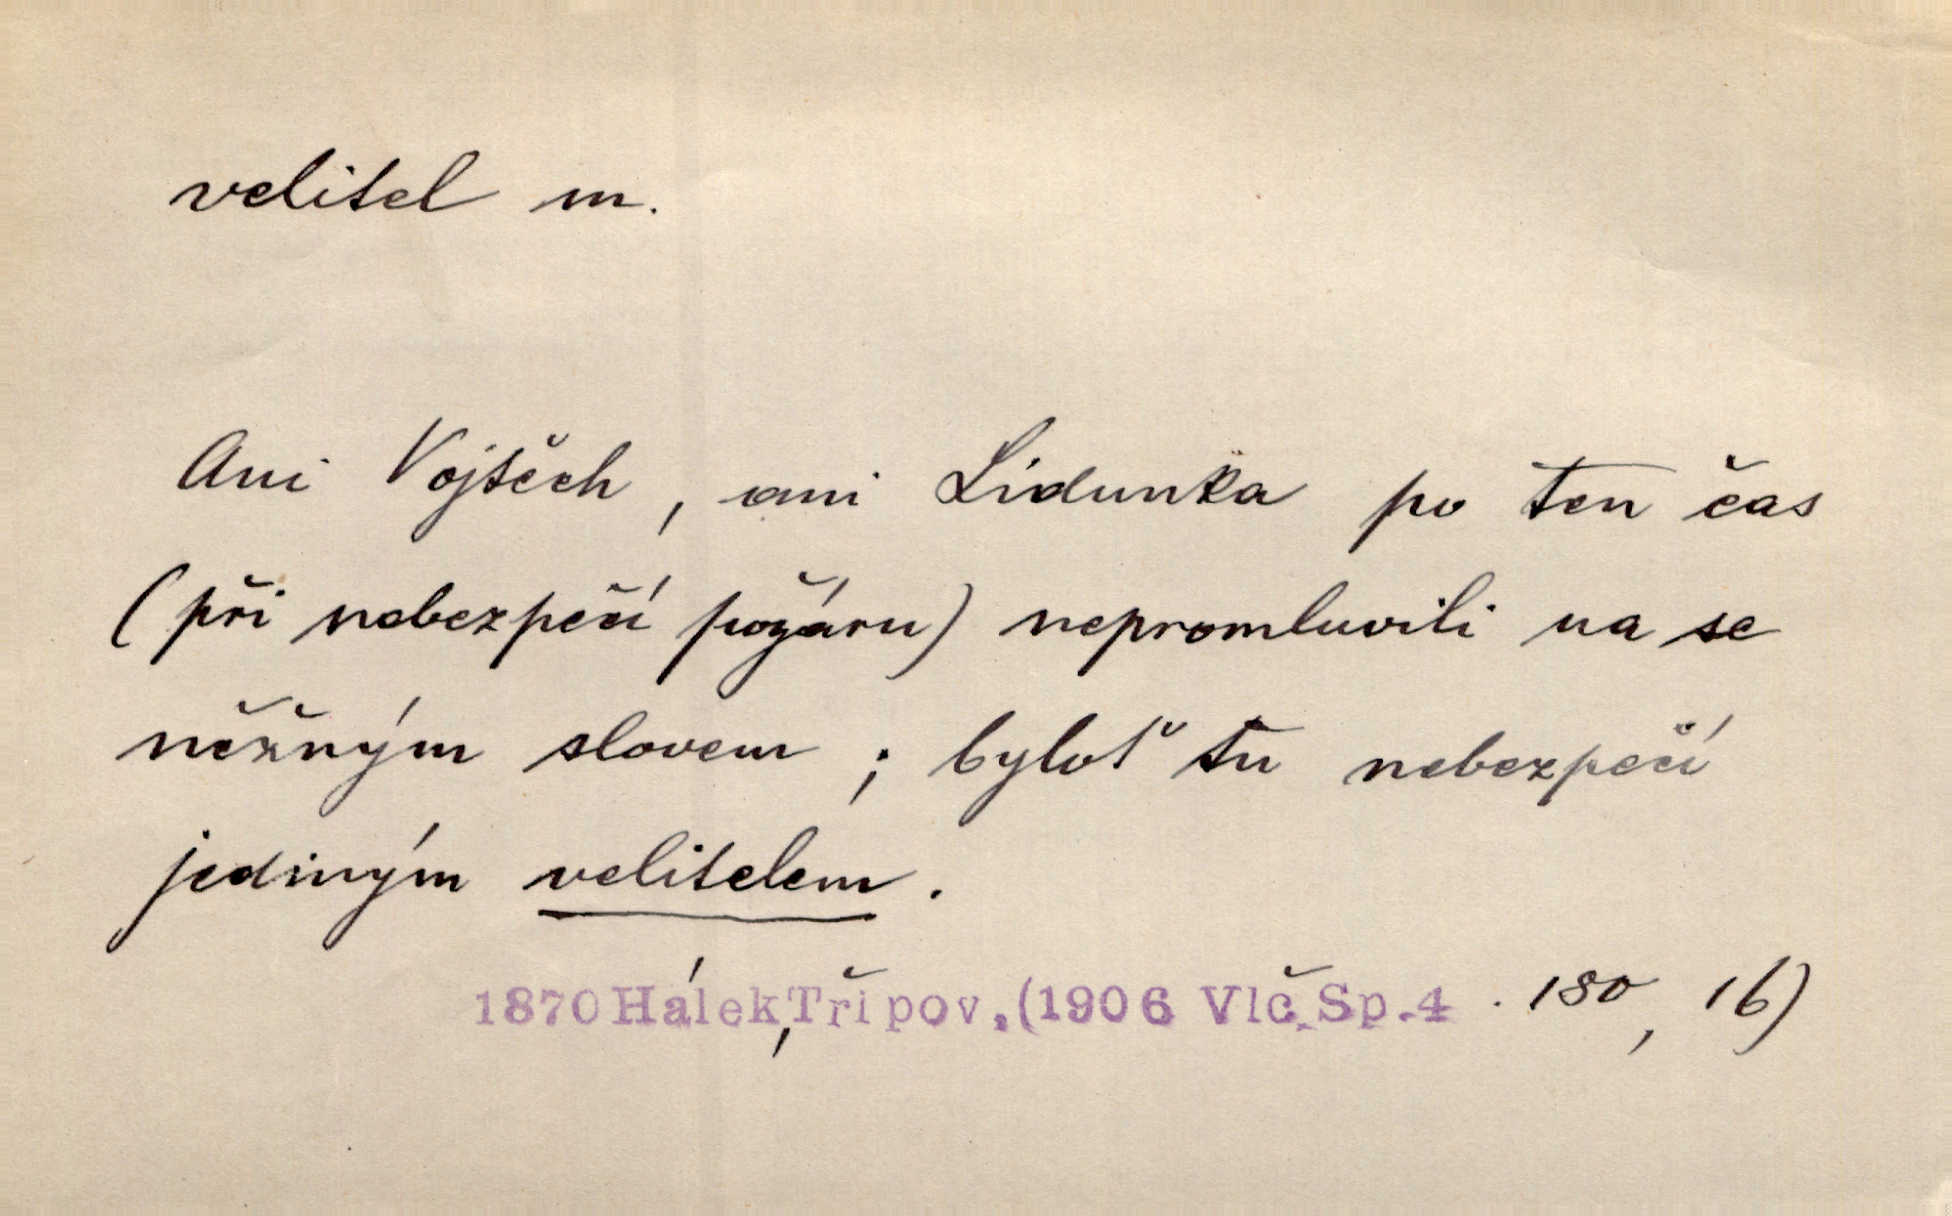 velitel m.
Ani Vojtěch, ani Lidunka po ten čas
(při nebezpečí požáru) nepromluvili na se
něžným slovem; byloť tu nebezpečí
jediným velitelem.
1870 Hálek, Tři pov. (1906 Vlč. Sp. 4. 180, 16)